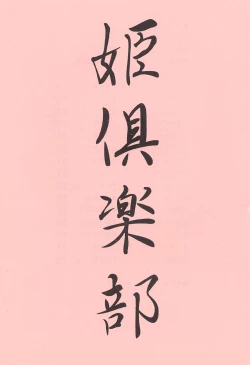 姫倶楽部